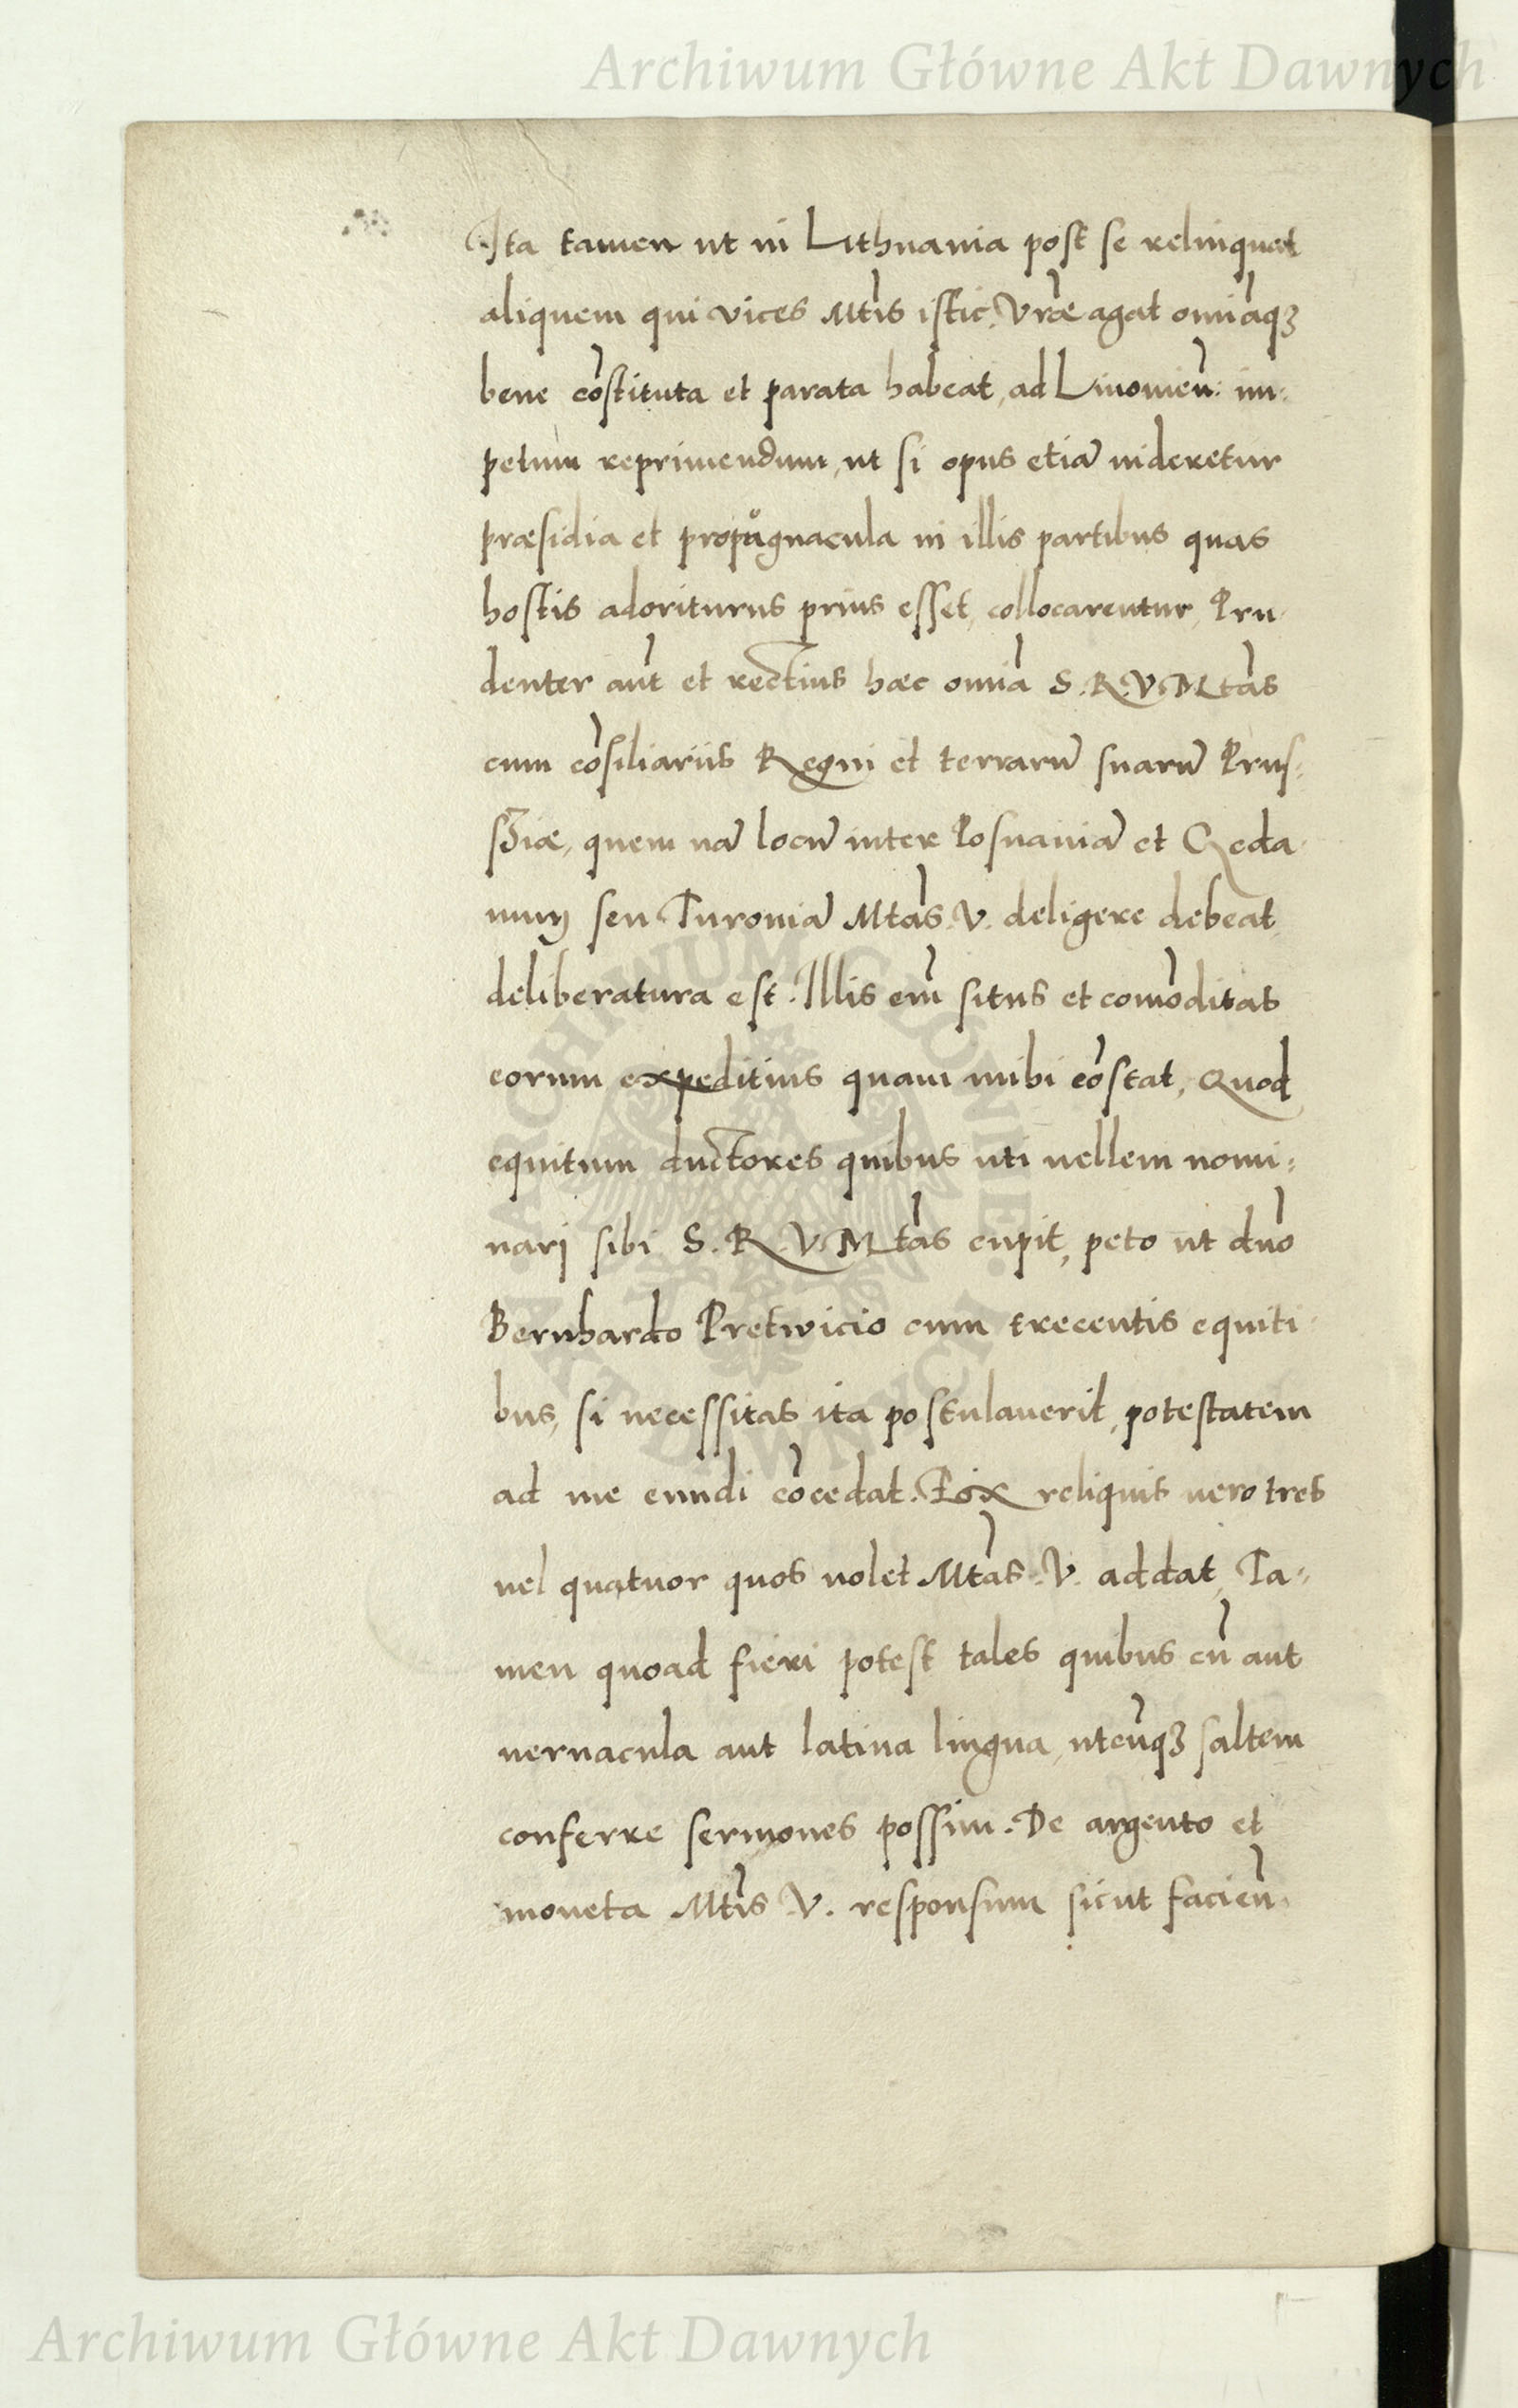 Archiwum Główne Akt Dawnych
Ita tamen ut in Lithuania post se relinquat
aliquem qui vices Mtis istic Vræ agat omiaqꝫ
bene cõstituta et parata habeat, ad Liuonien: im-
petum reprimendum, ut si opus etiã uideretur
præsidia et propůgnacula in illis partibus quas
hostis adoriturus prius esset, collocarentur, Pru-
denter aut et rectius hæc omia S. R. V. Mtas
cum cõsiliariis Regni et terrarũ suarũ Prus-
siæ, quem nã locũ inter Posnaniã et Geda-
num seu Turoniã Mtas. V. deligere debeat,
deliberatura est. Illis em situs et comoditas
eorum expeditius quam mihi cõstat, Quod
equitum ductores quibus uti uellem nomi-
nari sibi S. R. V. Mtas cupit, peto ut dno
Bernhardo Pretwicio cum trecentis equiti-
bus, si necessitas ita postulauerit, potestatem
ad me eundi cõcedat. Eix reliquis uero tres
uel quatuor quos uolet Mtas. V. addat, Ta-
men quoad fieri potest tales quibus cũ aut
uernacula aut latina lingua, utcũqꝫ saltem
conferre sermones possim. De argento et
moneta Mtis V. responsum sicut facien-
ARCHIWUM GŁÓWNE
AKT DAWNYCH
Archiwum Główne Akt Dawnych